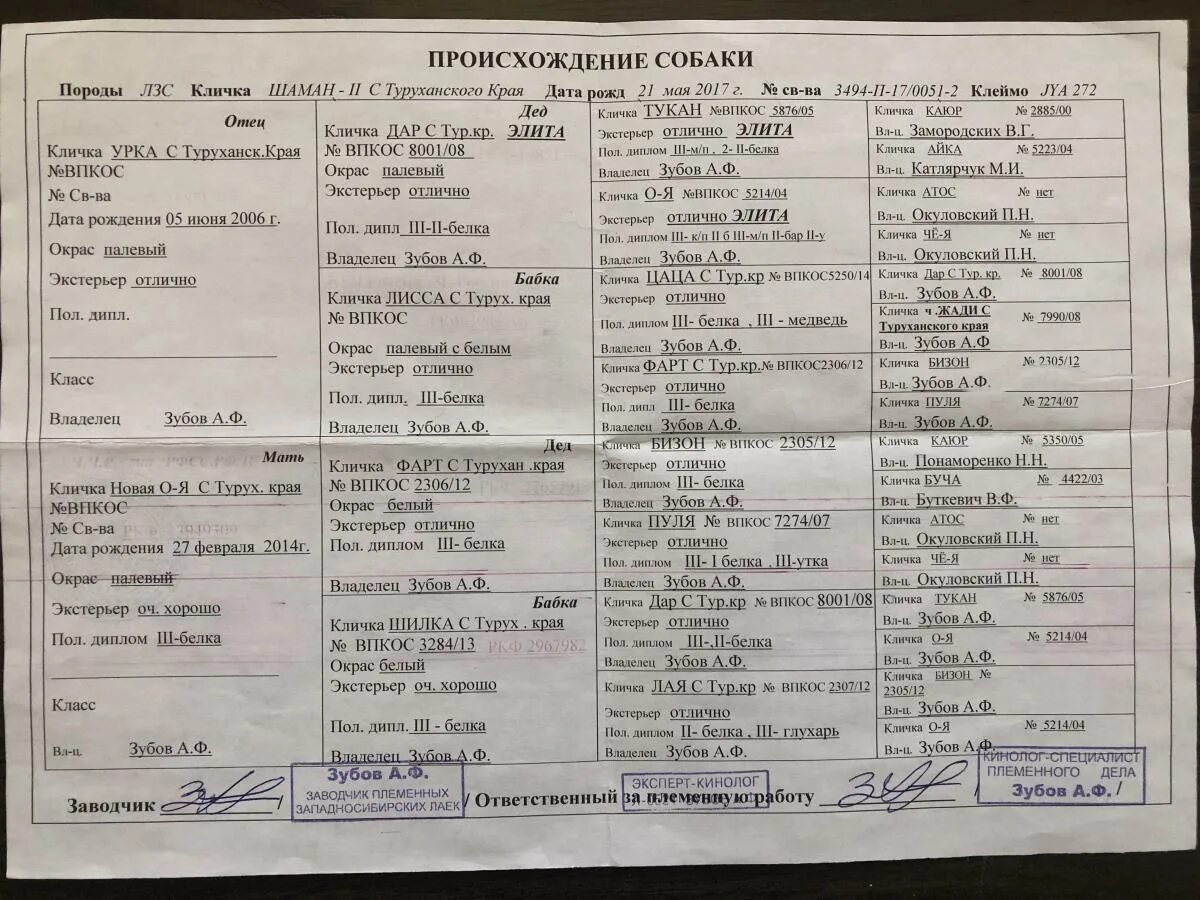 ПРОИСХОЖДЕНИЕ СОБАКИ
Породы ЛЗС Кличка ШАМАН - II С Туруханского Края Дата рожд 21 мая 2017 г. № св-ва 3494-П-17/0051-2 Клеймо JYA 272
Отец
Кличка УРКА С Туруханск.Края
№ВПКОС
№ Св-ва
Дата рождения 05 июня 2006 г.
Окрас палевый
Экстерьер отлично
Пол. дипл.
Класс
Владелец Зубов А.Ф.
Мать
Кличка Новая О-Я С Турух. края
№ВПКОС
№ Св-ва
Дата рождения 27 февраля 2014г.
Окрас палевый
Экстерьер оч. хорошо
Пол. диплом III-белка
Класс
Вл-ц. Зубов А.Ф.
Дед
Кличка ДАР С Тур.кр. ЭЛИТА
№ ВПКОС 8001/08
Окрас палевый
Экстерьер отлично
Пол. дипл III-II-белка
Владелец Зубов А.Ф.
Бабка
Кличка ЛИССА С Турух. края
№ ВПКОС
Окрас палевый с белым
Экстерьер отлично
Пол. дипл. III-белка
Владелец Зубов А.Ф.
Дед
Кличка ФАРТ С Турухан .края
№ ВПКОС 2306/12
Окрас белый
Экстерьер отлично
Пол. диплом III- белка
Владелец Зубов А.Ф.
Бабка
Кличка ШИЛКА С Турух . края
№ ВПКОС 3284/13 РКФ 2967982
Окрас белый
Экстерьер оч. хорошо
Пол. дипл. III - белка
Владелец Зубов А.Ф.
Кличка ТУКАН №ВПКОС 5876/05
Экстерьер отлично ЭЛИТА
Пол. диплом III-м/п , 2- II-белка
Владелец Зубов А.Ф.
Кличка О-Я №ВПКОС 5214/04
Экстерьер отлично ЭЛИТА
Пол. диплом III- к/п II б III-м/п II-бар II-у
Владелец Зубов А.Ф.
Кличка ЦАЦА С Тур.кр № ВПКОС5250/14
Экстерьер отлично
Пол. диплом III- белка , III - медведь
Владелец Зубов А.Ф.
Кличка ФАРТ С Тур.кр.№ ВПКОС2306/12
Экстерьер отлично
Пол. дипл III- белка
Владелец Зубов А.Ф.
Кличка БИЗОН № ВПКОС 2305/12
Экстерьер отлично
Пол. диплом III- белка
Владелец Зубов А.Ф.
Кличка ПУЛЯ № ВПКОС 7274/07
Экстерьер отлично
Пол. диплом III- I белка , III-утка
Владелец Зубов А.Ф.
Кличка Дар С Тур.кр № ВПКОС 8001/08
Экстерьер отлично
Пол. диплом III-,II-белка
Владелец Зубов А.Ф.
Кличка ЛАЯ С Тур.кр № ВПКОС 2307/12
Экстерьер отлично
Пол. диплом II- белка , III- глухарь
Владелец Зубов А.Ф.
Кличка КАЮР № 2885/00
Вл-ц. Замородских В.Г.
Кличка АЙКА № 5223/04
Вл-ц. Катлярчук М.И.
Кличка АТОС № нет
Вл-ц. Окуловский П.Н.
Кличка ЧЁ-Я № нет
Вл-ц. Окуловский П.Н.
Кличка Дар С Тур. кр. № 8001/08
Вл-ц. Зубов А.Ф.
Кличка ч .ЖАДИ С
Туруханского края № 7990/08
Вл-ц. Зубов А.Ф
Кличка БИЗОН № 2305/12
Вл-ц. Зубов А.Ф.
Кличка ПУЛЯ № 7274/07
Вл-ц. Зубов А.Ф.
Кличка КАЮР № 5350/05
Вл-ц. Понаморенко Н.Н.
Кличка БУЧА № 4422/03
Вл-ц. Буткевич В.Ф.
Кличка АТОС № нет
Вл-ц. Окуловский П.Н.
Кличка ЧЁ-Я № нет
Вл-ц. Окуловский П.Н.
Кличка ТУКАН № 5876/05
Вл-ц. Зубов А.Ф.
Кличка О-Я № 5214/04
Вл-ц. Зубов А.Ф.
Кличка БИЗОН №
2305/12
Вл-ц. Зубов А.Ф.
Кличка О-Я № 5214/04
Вл-ц. Зубов А.Ф.
Заводчик / Ответственный за племенную работу /
Зубов А.Ф.
ЗАВОДЧИК ПЛЕМЕННЫХ
ЗАПАДНОСИБИРСКИХ ЛАЕК
ЭКСПЕРТ-КИНОЛОГ
КИНОЛОГ-СПЕЦИАЛИСТ
ПЛЕМЕННОГО ДЕЛА
Зубов А.Ф.